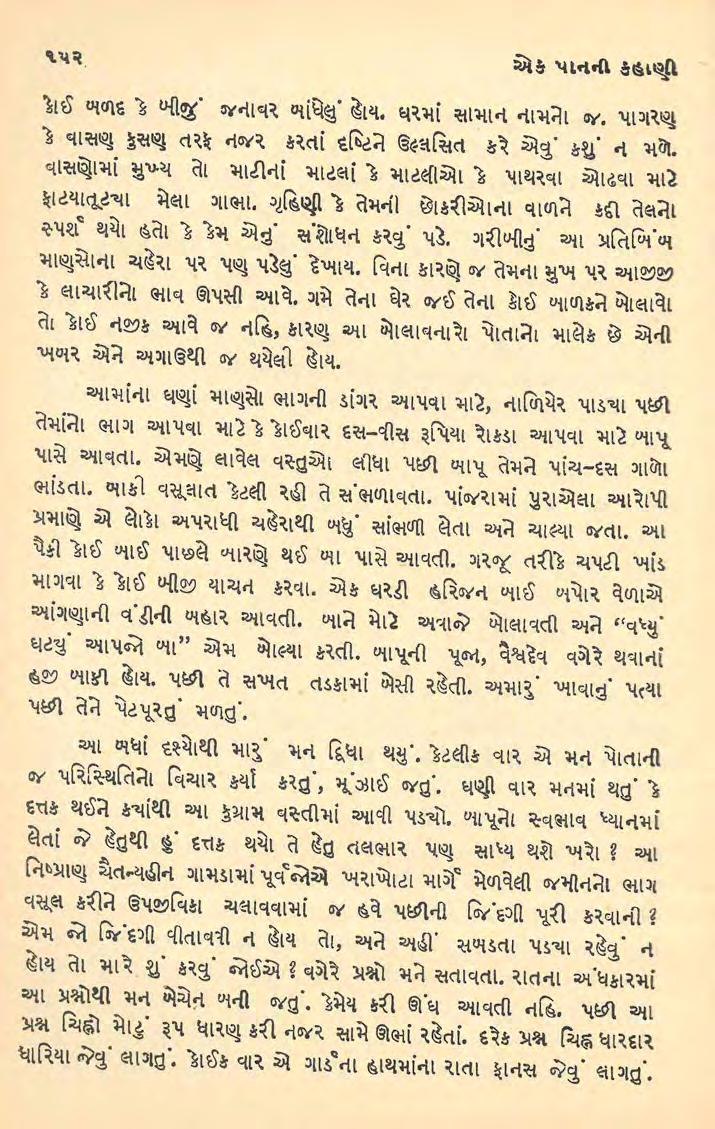 ૧૫૨
એક પાનની કહાણી
કોઈ બળદ કે બીજું જનાવર બાંધેલું હોય. ઘરમાં સામાન નામનો જ. પાગરણ
કે વાસણ કુસણ તરફ નજર કરતાં દૃષ્ટિને ઉલ્લસિત કરે એવું કશું ન મળે.
વાસણોમાં મુખ્ય તો માટીનાં માટલાં કે માટલીઓ કે પાથરવા ઓઢવા માટે
ફાટયાતૂટયા મેલા ગાભા. ગૃહિણી કે તેમની છોકરીઓના વાળને કદી તેલનો
સ્પર્શ થયો હતો કે કેમ એનું સંશોધન કરવું પડે. ગરીબીનું આ પ્રતિબિંબ
માણસોના ચહેરા પર પણ પડેલું દેખાય. વિના કારણે જ તેમના મુખ પર આજીજી
કે લાચારીનો ભાવ ઊપસી આવે. ગમે તેના ઘેર જઈ તેના કોઈ બાળકને બોલાવો
તો કોઈ નજીક આવે જ નહિ, કારણ આ બોલાવનારો પોતાનો માલેક છે એની
ખબર એને અગાઉથી જ થયેલી હોય.
આમાંના ઘણાં માણસો ભાગની ડાંગર આપવા માટે, નાળિયેર પાડયા પછી
તેમાંનો ભાગ આપવા માટે કે કોઈવાર દસ–વીસ રૂપિયા રોકડા આપવા માટે બાપૂ
પાસે આવતા. એમણે લાવેલ વસ્તુઓ લીધા પછી બાપૂ તેમને પાંચ–દસ ગાળો
ભાંડતા. બાકી વસૂલાત કેટલી રહી તે સંભળાવતા. પાંજરામાં પુરાએલા આરોપી
પ્રમાણે એ લોકો અપરાધી ચહેરાથી બધું સાંભળી લેતા અને ચાલ્યા જતા. આ
પૈકી કોઈ બાઈ પાછલે બારણે થઈ બા પાસે આવતી. ગરજૂ તરીકે ચપટી ખાંડ
માગવા કે કોઈ બીજી યાચન કરવા. એક ઘરડી હરિજન બાઈ બપોર વેળાએ
આંગણાની વંડીની બહાર આવતી. બાને મોટે અવાજે બોલાવતી અને “વધ્યું
ઘટયું આપજો બા” એમ બોલ્યા કરતી. બાપૂની પૂજા, વૈશ્વદેવ વગેરે થવાનાં
હજી બાકી હોય. પછી તે સખત તડકામાં બેસી રહેતી. અમારું ખાવાનું પત્યા
પછી તેને પેટપૂરતું મળતું.
આ બધાં દૃશ્યોથી મારું મન દ્વિધા થયું. કેટલીક વાર એ મન પોતાની
જ પરિસ્થિતિનો વિચાર કર્યા કરતું, મૂંઝાઈ જતું. ઘણી વાર મનમાં થતું કે
દત્તક થઈને કયાંથી આ કુગ્રામ વસ્તીમાં આવી પડયો. બાપૂનો સ્વભાવ ધ્યાનમાં
લેતાં જે હેતુથી હું દત્તક થયો તે હેતુ તલભાર પણ સાધ્ય થશે ખરો ? આ
નિષ્પ્રાણ ચૈતન્યહીન ગામડામાં પૂર્વજોએ ખરાખોટા માર્ગે મેળવેલી જમીનનો ભાગ
વસૂલ કરીને ઉપજીવિકા ચલાવવામાં જ હવે પછીની જિંદગી પૂરી કરવાની ?
એમ જો જિંદગી વીતાવવી ન હોય તો, અને અહીં સબડતા પડયા રહેવું ન
હોય તો મારે શું કરવું જોઈએ ? વગેરે પ્રશ્નો મને સતાવતા. રાતના અંધકારમાં
આ પ્રશ્નોથી મન બેચેન બની જતું. કેમેય કરી ઊંઘ આવતી નહિ. પછી આ
પ્રશ્ન ચિહ્નો મોટું રૂપ ધારણ કરી નજર સામે ઊભાં રહેતાં. દરેક પ્રશ્ન ચિહ્ન ધારદાર
ધારિયા જેવું લાગતું. કોઈક વાર એ ગાર્ડના હાથમાંના રાતા ફાનસ જેવું લાગતું.